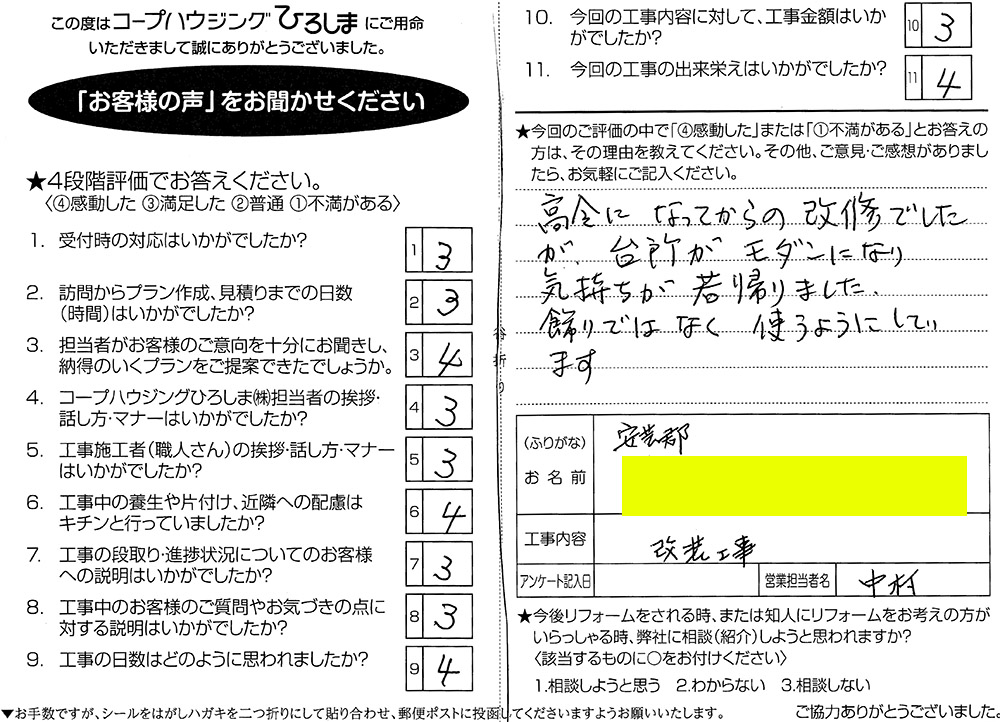 この度はコープハウジングひろしまにご用命
いただきまして誠にありがとうございました。
「お客様の声」をお聞かせください
★4段階評価でお答えください。
〈④感動した ③満足した ②普通 ①不満がある〉
1. 受付時の対応はいかがでしたか?
1 3
2. 訪問からプラン作成、見積りまでの日数
(時間)はいかがでしたか?
2 3
3. 担当者がお客様のご意向を十分にお聞きし、
納得のいくプランをご提案できたでしょうか。
3 4
4. コープハウジングひろしま㈱担当者の挨拶・
話し方・マナーはいかがでしたか?
4 3
5. 工事施工者(職人さん)の挨拶・話し方・マナー
はいかがでしたか?
5 3
6. 工事中の養生や片付け、近隣への配慮は
キチンと行っていましたか?
6 4
7. 工事の段取り・進捗状況についてのお客様
への説明はいかがでしたか?
7 3
8. 工事中のお客様のご質問やお気づきの点に
対する説明はいかがでしたか?
8 3
9. 工事の日数はどのように思われましたか?
9 4
谷折り
10. 今回の工事内容に対して、工事金額はいか
がでしたか?
10 3
11. 今回の工事の出来栄えはいかがでしたか?
11 4
★今回のご評価の中で「④感動した」または「①不満がある」とお答えの
方は、その理由を教えてください。その他、ご意見・ご感想がありまし
たら、お気軽にご記入ください。
高令になってからの改修でした
が、台所がモダンになり
気持ちが若帰りました、
飾りではなく使うようにしてい
ます
(ふりがな)
お名前
安芸郡
工事内容
改装工事
アンケート記入日
営業担当者名
中村
★今後リフォームをされる時、または知人にリフォームをお考えの方が
いらっしゃる時、弊社に相談(紹介)しようと思われますか?
〈該当するものに○をお付けください〉
1.相談しようと思う 2.わからない 3.相談しない
▼お手数ですが、シールをはがしハガキを二つ折りにして貼り合わせ、郵便ポストに投函してくださいますようお願いいたします。
ご協力ありがとうございました。